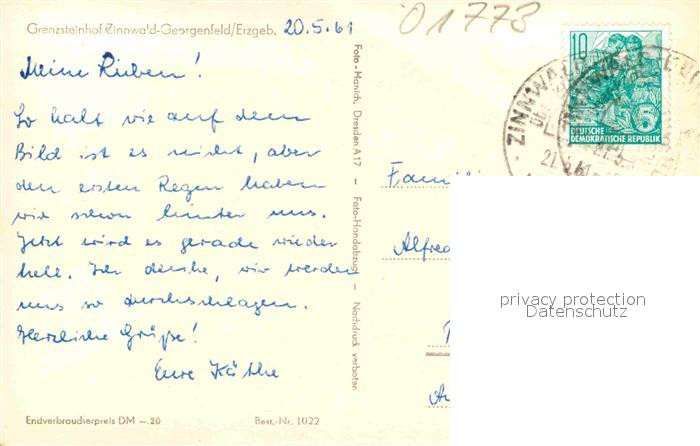 Grenzsteinhof Zinnwald-Georgenfeld/Erzgeb. 20.5.61
01778
Meine Lieben!
So kalt wie auf dem
Bild ist es nicht, aber
den ersten Regen haben
wir schon hinter uns.
Jetzt wird es gerade wieder
hell. Ich denke, wir werden
uns so durchschlagen.
Herzliche Grüße!
Eure Käthe
Endverbraucherpreis DM —.20
Best.-Nr. 1022
Foto-Manich, Dresden A 17 — Foto-Handabzug — Nachdruck verboten
10
5
DEUTSCHE
DEMOKRATISCHE REPUBLIK
ZINNWALD
Famili
Alfred
privacy protection
Datenschutz